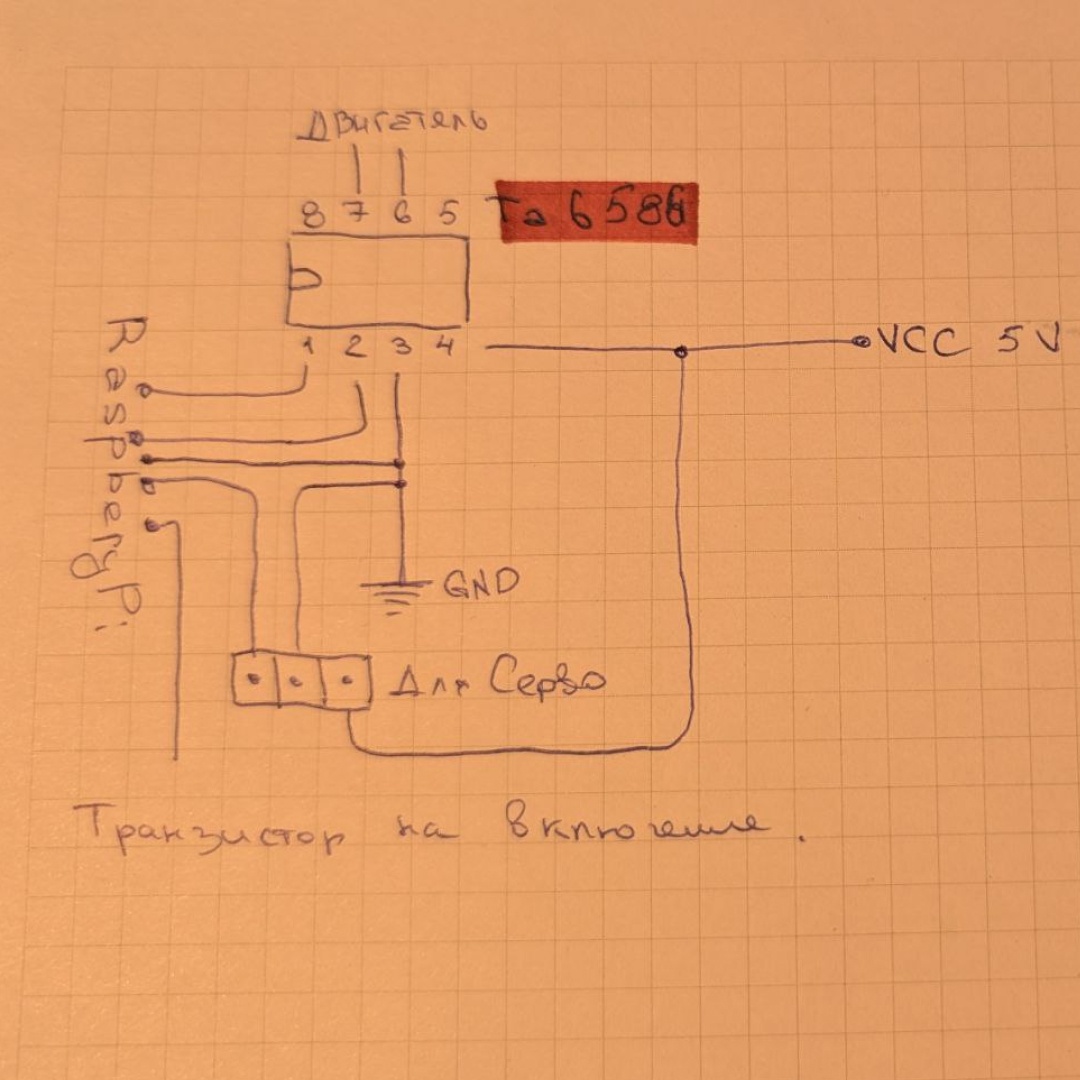 Двигатель
8 7 6 5 Ta 6586
1 2 3 4
VCC 5V
Raspbery Pi
GND
Для Серво
Транзистор на включение.